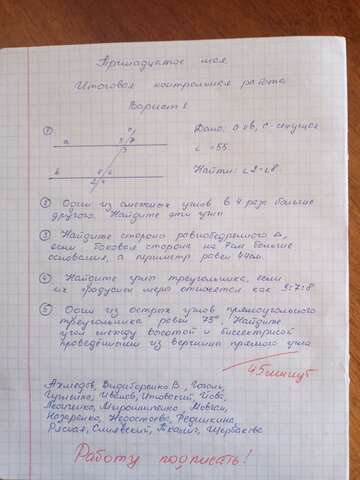 Тринадцатое мая
Итоговая контрольная работа
Вариант
①
a
b
c
Дано: a || b, c - секущая
∠ = 55
Найти: ∠2 - ∠8
② Один из смежных углов в 4 раза больше
другого. Найдите эти углы
③ Найдите стороны равнобедренного Δ,
если боковая сторона на 7см больше
основания, а периметр равен 44см.
④ Найдите углы треугольника, если
их градусные меры относятся как 3:7:8
⑤ Один из острых углов прямоугольного
треугольника равен 73°. Найдите
угол между высотой и биссектрисой
проведёнными из вершины прямого угла
45 минут
Ахмедов, В., Гоголь,
Иванов,
Мирошниченко,
Назаренко,
Щербакова
Работу подписать!